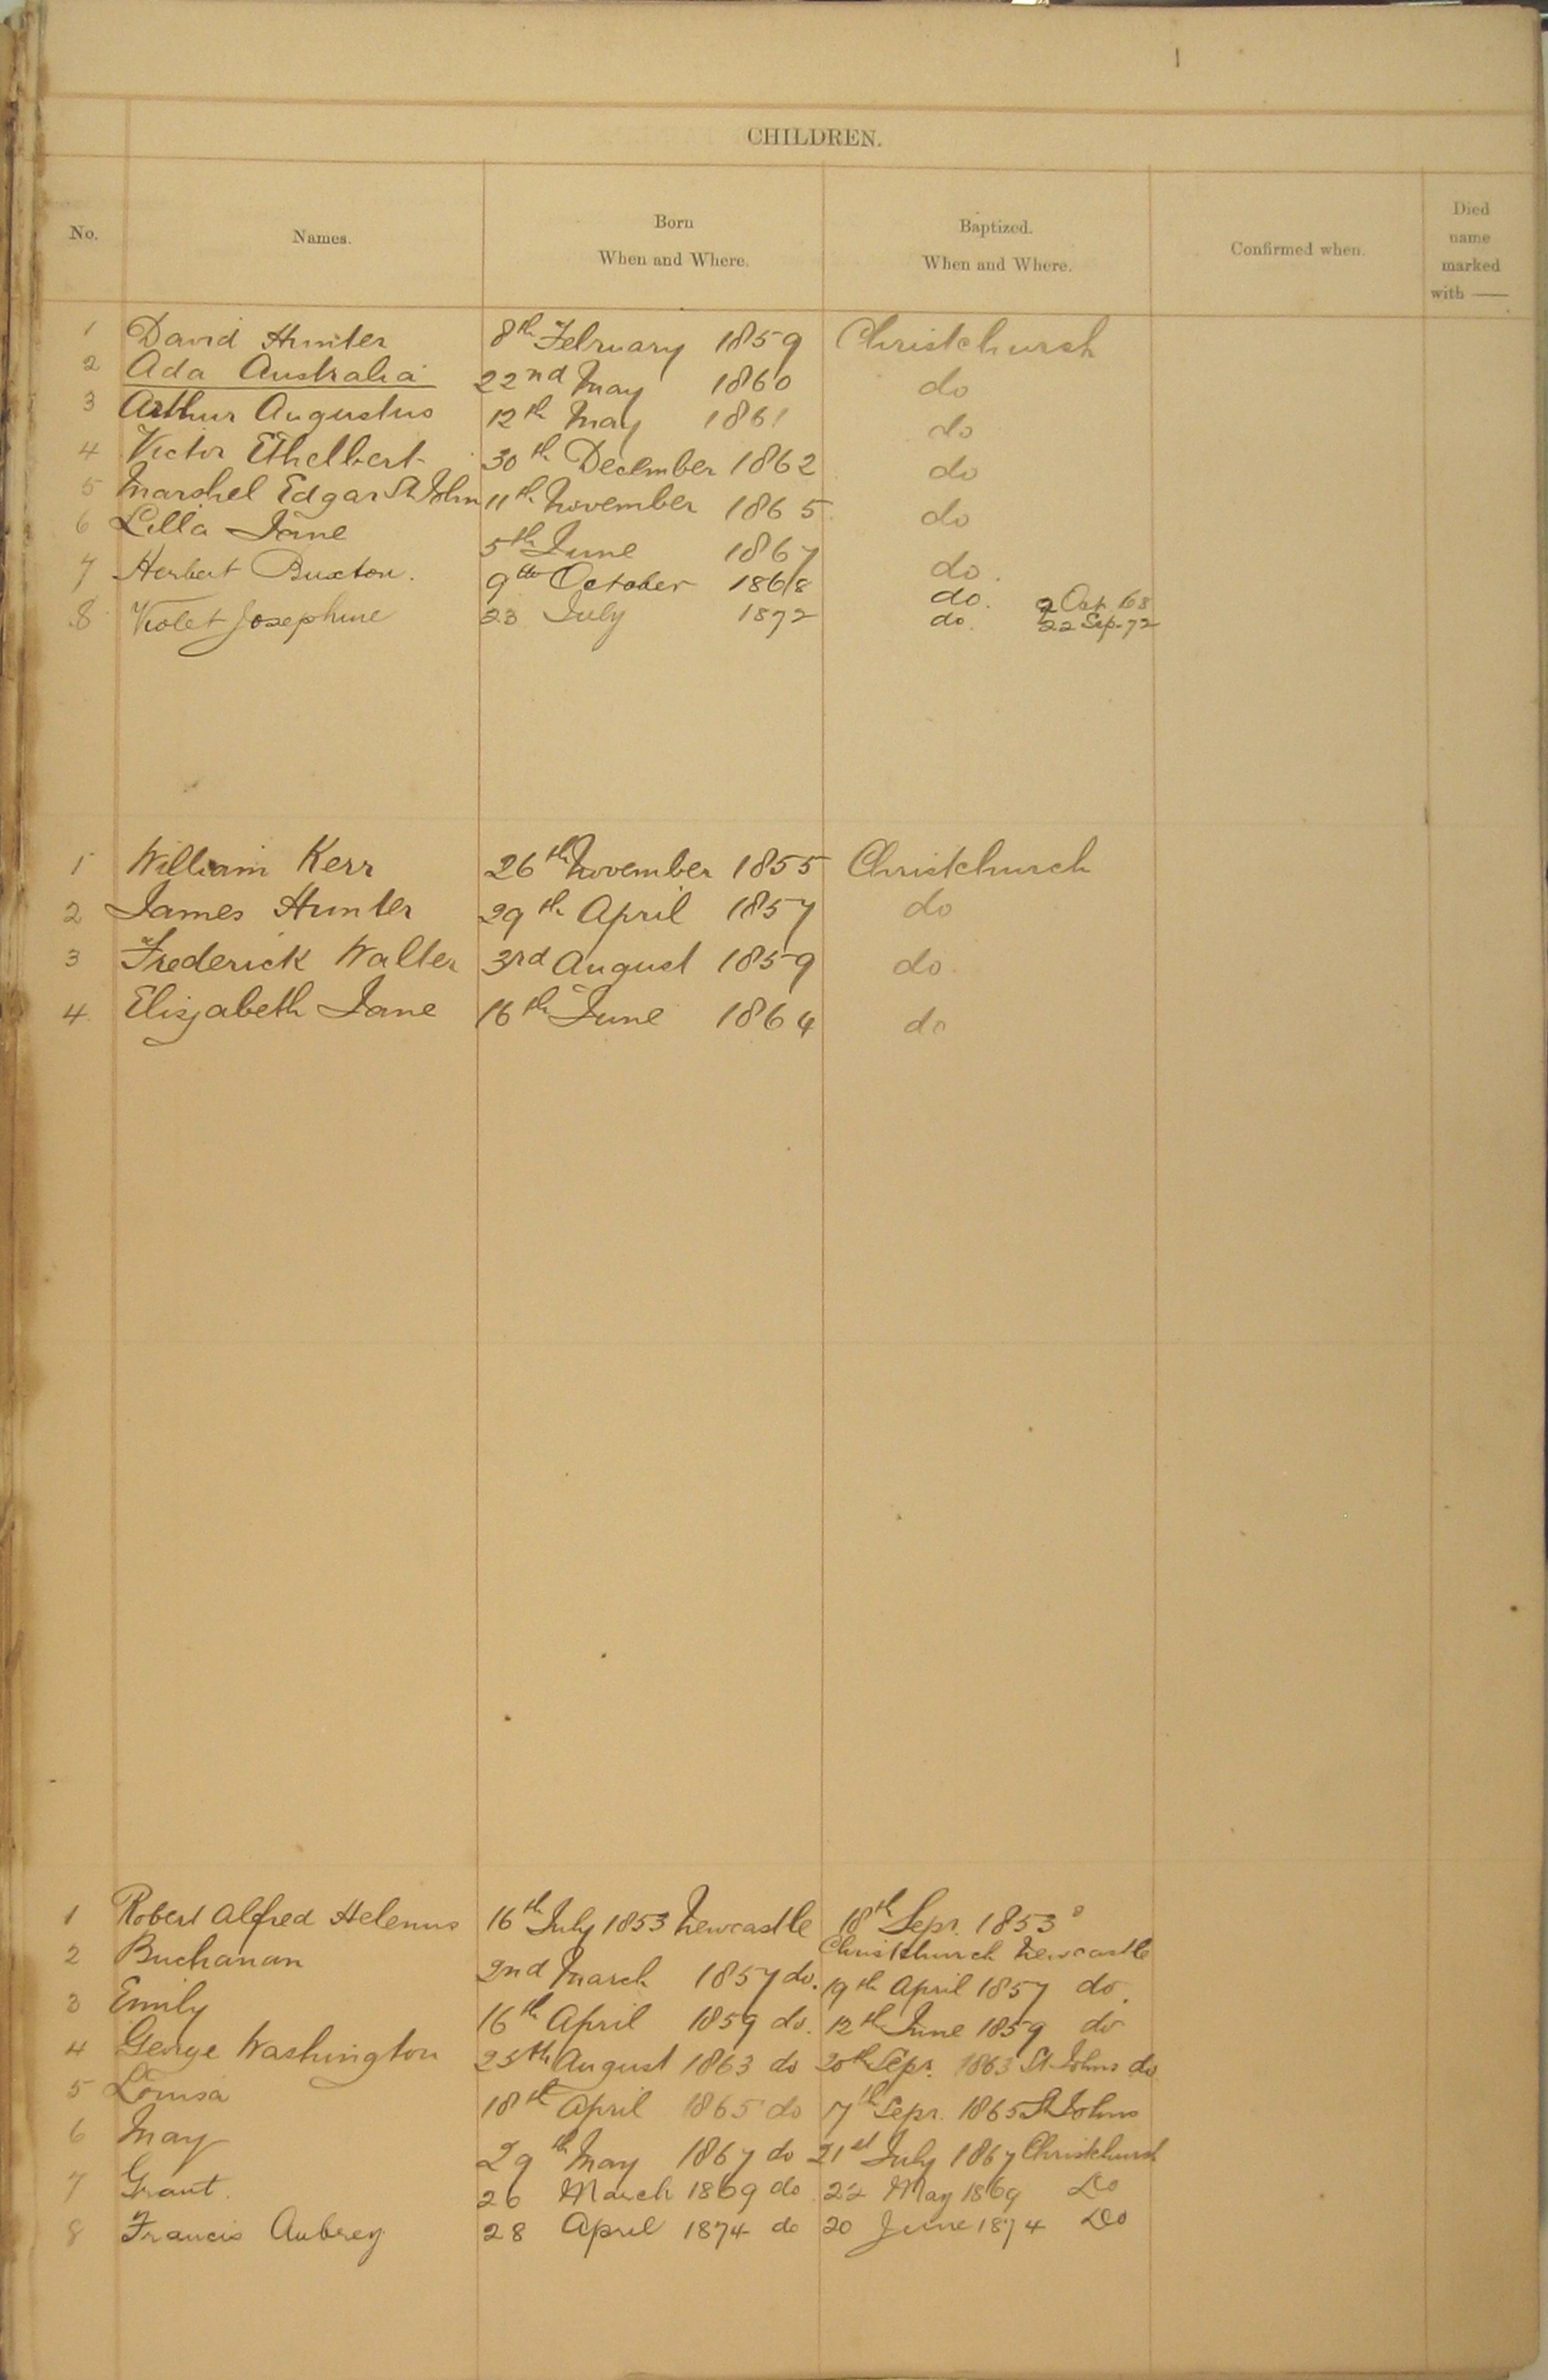 1
CHILDREN.
No. Names. Born When and Where. Baptized. When and Where. Confirmed when. Died name marked with —
1 David Hunter 8th February 1859 Christchurch
2 Ada Australia 22nd May 1860 do
3 Arthur Augustus 12th May 1861 do
4 Victor Ethelbert 30th December 1862 do
5 Marshel Edgar St John 11th November 1865 do
6 Lilla Jane 5th June 1867 do.
7 Herbert Buxton. 9th October 1868 do. 2 Oct 68
8 Violet Josephine 23 July 1872 do. 22 Sep. 72
1 William Kerr 26th November 1855 Christchurch
2 James Hunter 29th April 1857 do
3 Frederick Walter 3rd August 1859 do
4 Elizabeth Jane 16th June 1864 do
1 Robert Alfred Helenus 16th July 1853 Newcastle 18th Sepr. 1853
Christchurch Newcastle
2 Buchanan 2nd March 1857 do. 19th April 1857 do.
3 Emily 16th April 1859 do. 12th June 1859 do
4 George Washington 25th August 1863 do 20th Sepr. 1863 St. Johns do
5 Louisa 18th April 1865 do 17th Sepr. 1865 St Johns
6 May 29th May 1867 do 21st July 1867 Christchurch
7 Grant. 26 March 1869 do 22 May 1869 Do
8 Francis Aubrey 28 April 1874 do 20 June 1874 Do